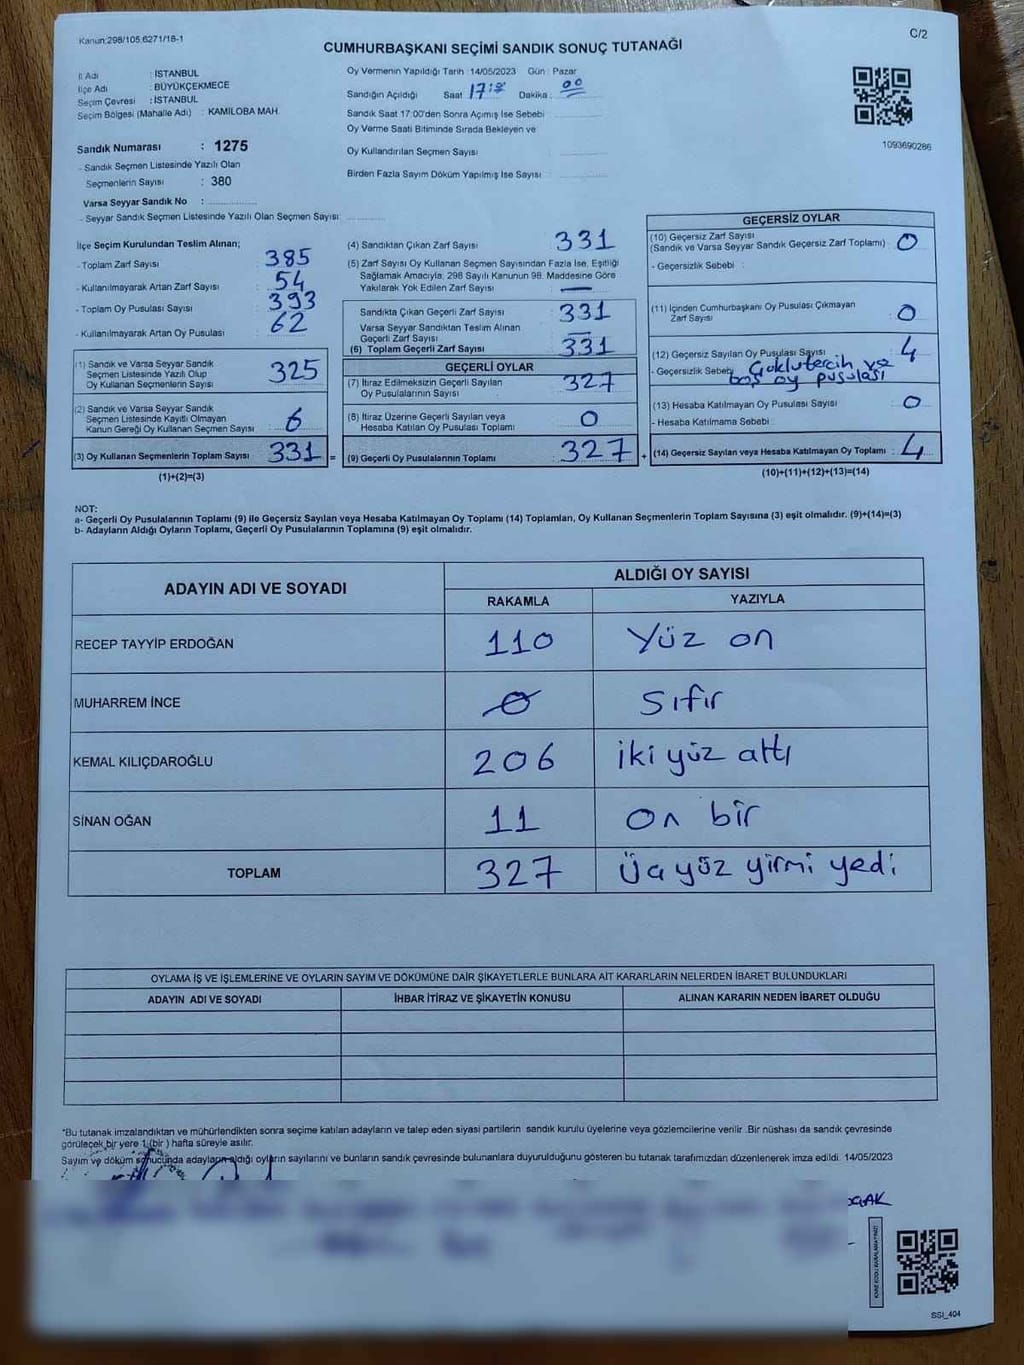 Kanun:298/105,6271/18-1
C/2
CUMHURBAŞKANI SEÇİMİ SANDIK SONUÇ TUTANAĞI
İl Adı : İSTANBUL
İlçe Adı : BÜYÜKÇEKMECE
Seçim Çevresi : İSTANBUL
Seçim Bölgesi (Mahalle Adı) : KAMİLOBA MAH.
Oy Vermenin Yapıldığı Tarih : 14/05/2023 Gün : Pazar
Sandığın Açıldığı Saat 17:00 Dakika : 00
Sandık Saat 17:00'den Sonra Açılmış İse Sebebi :
Oy Verme Saati Bitiminde Sırada Bekleyen ve
Oy Kullandırılan Seçmen Sayısı :
Birden Fazla Sayım Döküm Yapılmış İse Sayısı :
1093690286
Sandık Numarası : 1275
- Sandık Seçmen Listesinde Yazılı Olan
Seçmenlerin Sayısı : 380
Varsa Seyyar Sandık No :
- Seyyar Sandık Seçmen Listesinde Yazılı Olan Seçmen Sayısı:
İlçe Seçim Kurulundan Teslim Alınan;
- Toplam Zarf Sayısı : 385
- Kullanılmayarak Artan Zarf Sayısı : 54
- Toplam Oy Pusulası Sayısı : 393
- Kullanılmayarak Artan Oy Pusulası : 62
(1) Sandık ve Varsa Seyyar Sandık
Seçmen Listesinde Yazılı Olup
Oy Kullanan Seçmenlerin Sayısı : 325
(2) Sandık ve Varsa Seyyar Sandık
Seçmen Listesinde Kayıtlı Olmayan
Kanun Gereği Oy Kullanan Seçmen Sayısı : 6
(3) Oy Kullanan Seçmenlerin Toplam Sayısı : 331 =
(1)+(2)=(3)
(4) Sandıktan Çıkan Zarf Sayısı : 331
(5) Zarf Sayısı Oy Kullanan Seçmen Sayısından Fazla İse, Eşitliği
Sağlamak Amacıyla, 298 Sayılı Kanunun 98. Maddesine Göre
Yakılarak Yok Edilen Zarf Sayısı : —
Sandıkta Çıkan Geçerli Zarf Sayısı : 331
Varsa Seyyar Sandıktan Teslim Alınan
Geçerli Zarf Sayısı : —
(6) Toplam Geçerli Zarf Sayısı : 331
GEÇERLİ OYLAR
(7) İtiraz Edilmeksizin Geçerli Sayılan
Oy Pusulasının Sayısı : 327
(8) İtiraz Üzerine Geçerli Sayılan veya
Hesaba Katılan Oy Pusulası Toplamı : 0
(9) Geçerli Oy Pusulalarının Toplamı : 327 +
GEÇERSİZ OYLAR
(10) Geçersiz Zarf Sayısı
(Sandık ve Varsa Seyyar Sandık Geçersiz Zarf Toplamı) : 0
- Geçersizlik Sebebi :
(11) İçinden Cumhurbaşkanı Oy Pusulası Çıkmayan
Zarf Sayısı : 0
(12) Geçersiz Sayılan Oy Pusulası Sayısı : 4
- Geçersizlik Sebebi : Çoklu tercih ve
boş oy pusulası
(13) Hesaba Katılmayan Oy Pusulası Sayısı : 0
- Hesaba Katılmama Sebebi :
(14) Geçersiz Sayılan veya Hesaba Katılmayan Oy Toplamı : 4
(10)+(11)+(12)+(13)=(14)
NOT:
a- Geçerli Oy Pusulalarının Toplamı (9) ile Geçersiz Sayılan veya Hesaba Katılmayan Oy Toplamı (14) Toplamları, Oy Kullanan Seçmenlerin Toplam Sayısına (3) eşit olmalıdır. (9)+(14)=(3)
b- Adayların Aldığı Oyların Toplamı, Geçerli Oy Pusulasının Toplamına (9) eşit olmalıdır.
ADAYIN ADI VE SOYADI
ALDIĞI OY SAYISI
RAKAMLA YAZIYLA
RECEP TAYYİP ERDOĞAN 110 Yüz on
MUHARREM İNCE 0 Sıfır
KEMAL KILIÇDAROĞLU 206 iki yüz altı
SİNAN OĞAN 11 On bir
TOPLAM 327 Üç yüz yirmi yedi
OYLAMA İŞ VE İŞLEMLERİNE VE OYLARIN SAYIM VE DÖKÜMÜNE DAİR ŞİKAYETLERLE BUNLARA AİT KARARLARIN NELERDEN İBARET BULUNDUKLARI
ADAYIN ADI VE SOYADI İHBAR İTİRAZ VE ŞİKAYETİN KONUSU ALINAN KARARIN NEDEN İBARET OLDUĞU
*Bu tutanak imzalandıktan ve mühürlendikten sonra seçime katılan adayların ve talep eden siyasi partilerin sandık kurulu üyelerine veya gözlemcilerine verilir. Bir nüshası da sandık çevresinde
görülecek bir yere 1 (bir) hafta süreyle asılır.
Sayım ve döküm sonucunda adayların aldığı oyların sayılarını ve bunların sandık çevresinde bulunanlara duyurulduğunu gösteren bu tutanak tarafımızdan düzenlenerek imza edildi. 14/05/2023
SSI_404